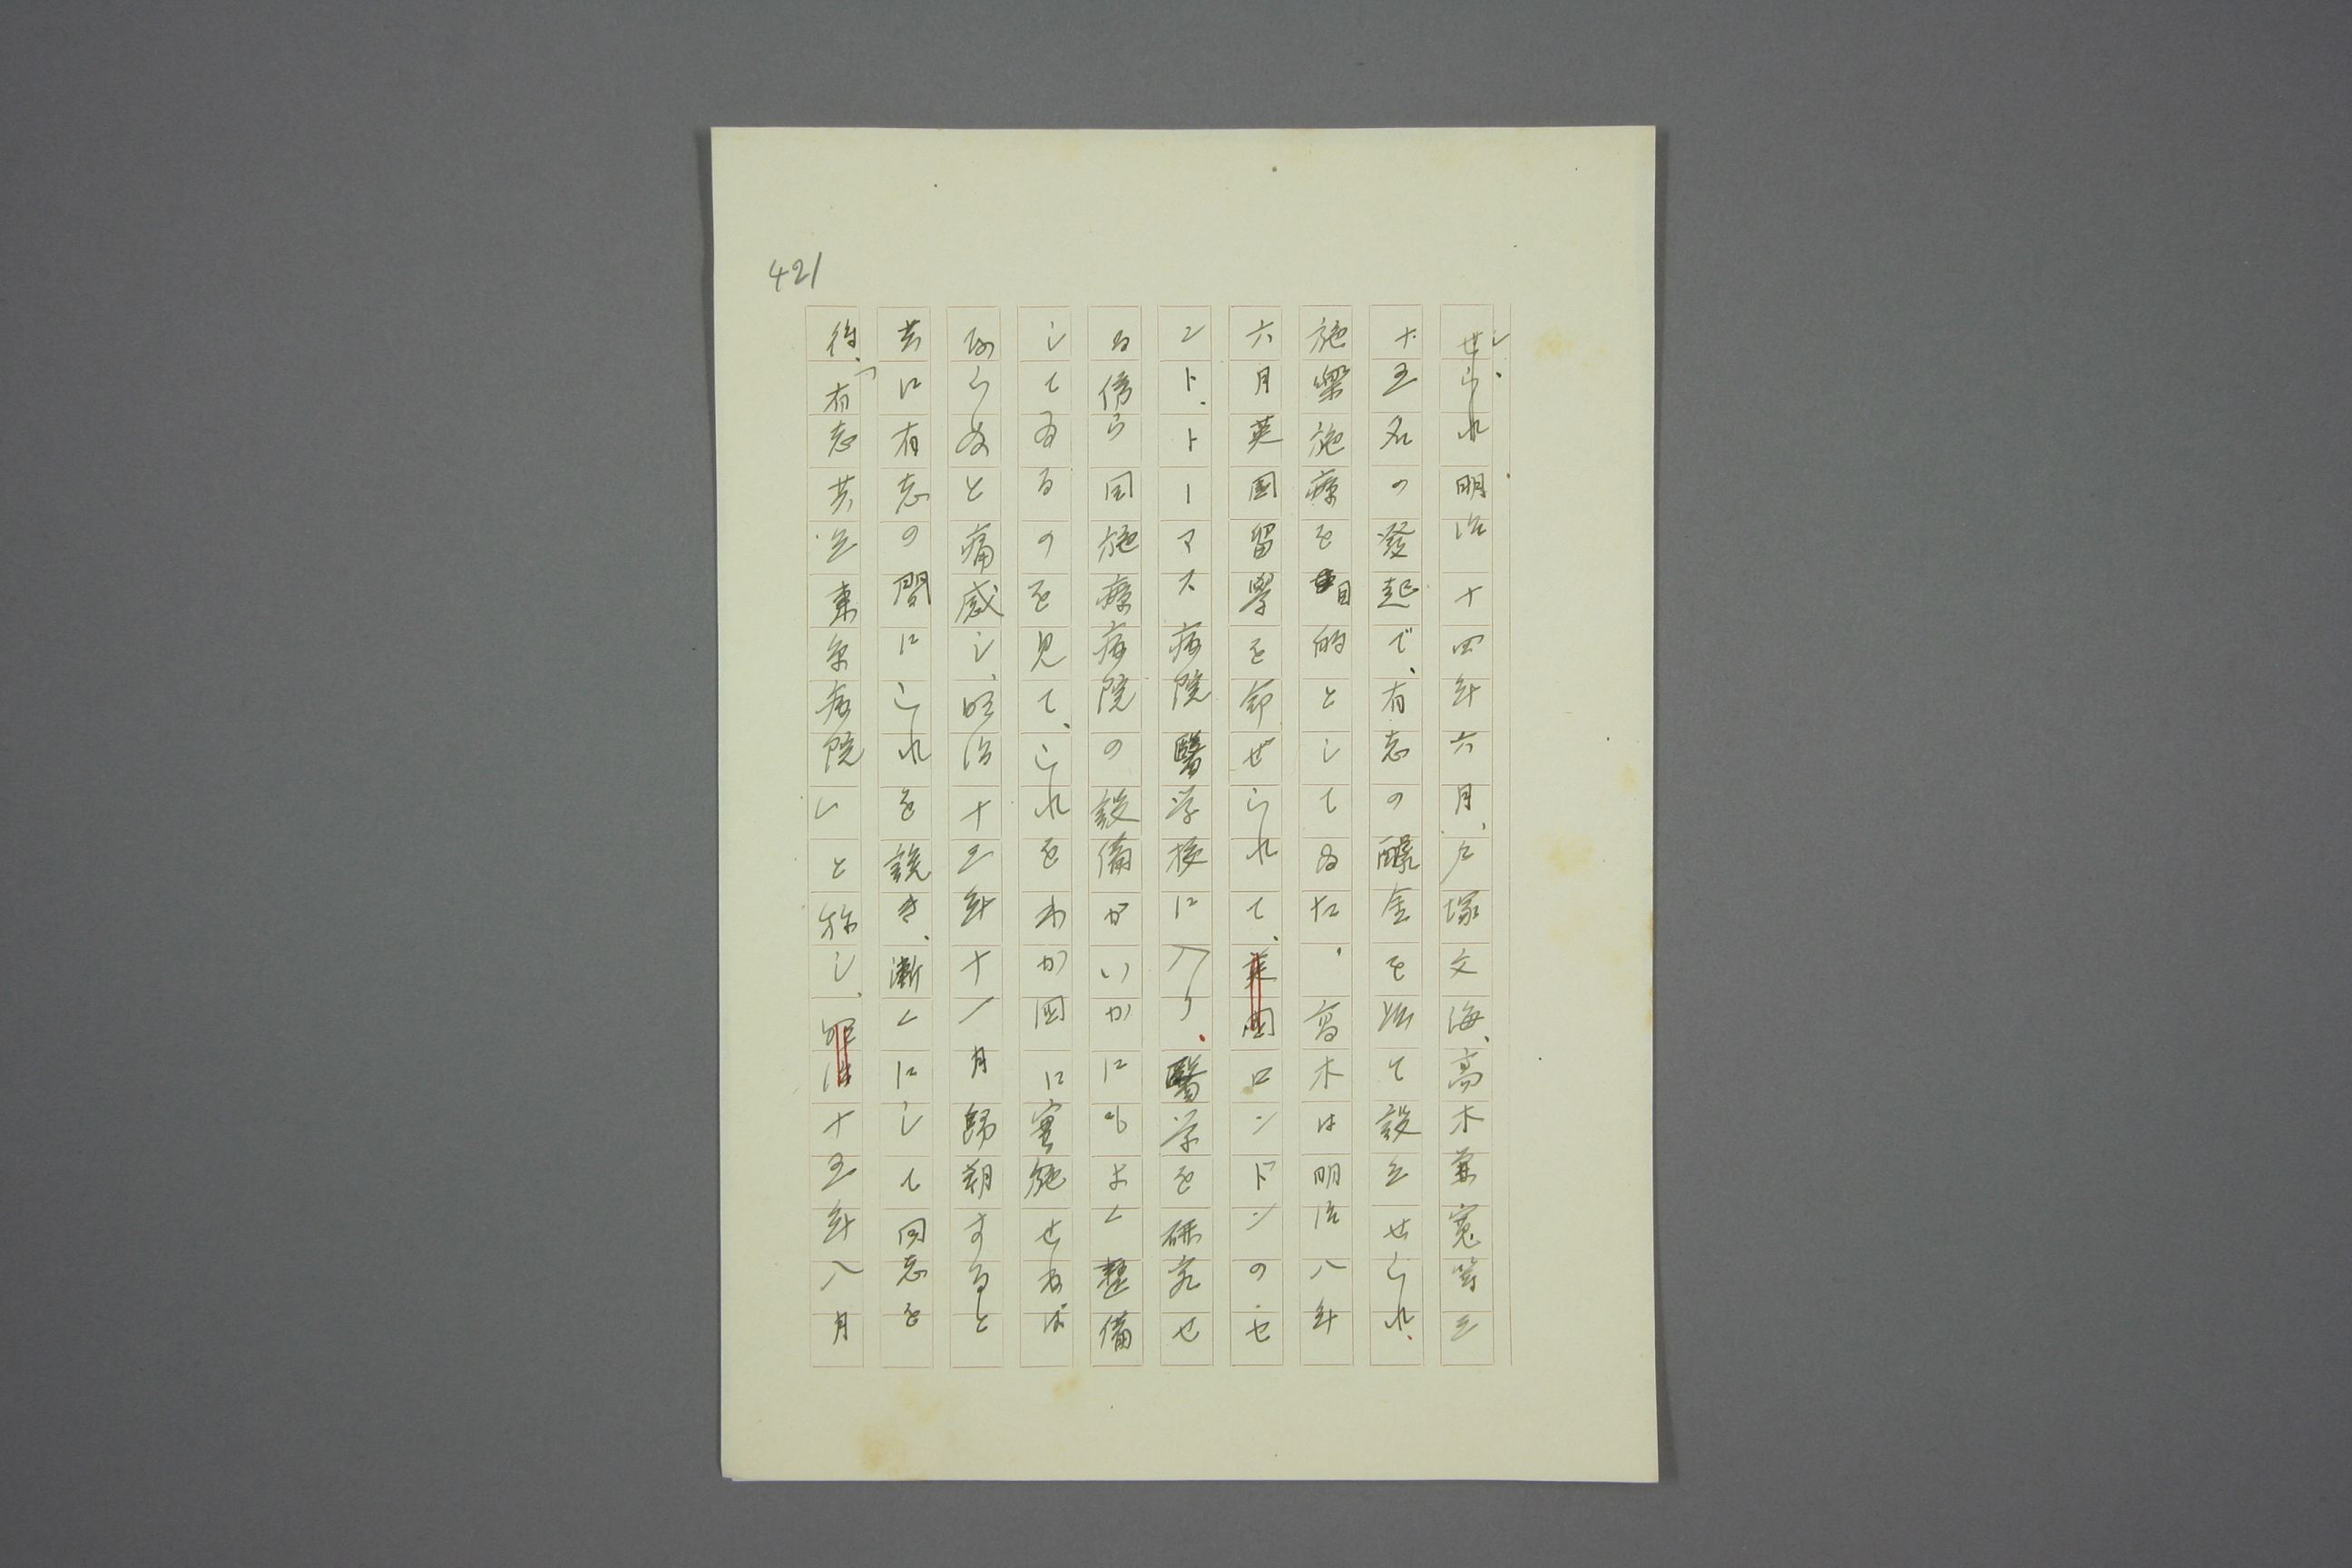 421
し、明治十四年六月、戸塚文海、高木兼寛等立
十五名の發起で、有志の醵金を以て設立せられ、
施藥施療を目的としてゐた。高木は明治八年
六月英國留學を命ぜられて、ロンドンのセ
ント、トーマス病院醫学校に入り、醫学を研究せ
る傍ら同施療病院の設備がいかにもよく整備
してゐるのを見て、これをわが国に實施せねば
ならぬと痛感し、明治十三年十一月歸朝すると
共に有志の間にこれを説き、漸くにして同志を
得、「有志共立東京病院」と称し、十五年八月